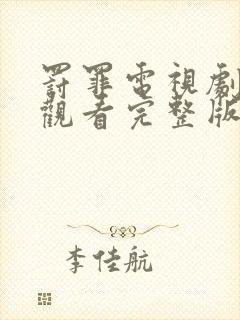 罰罪電視劇
觀看完整版
李佳航